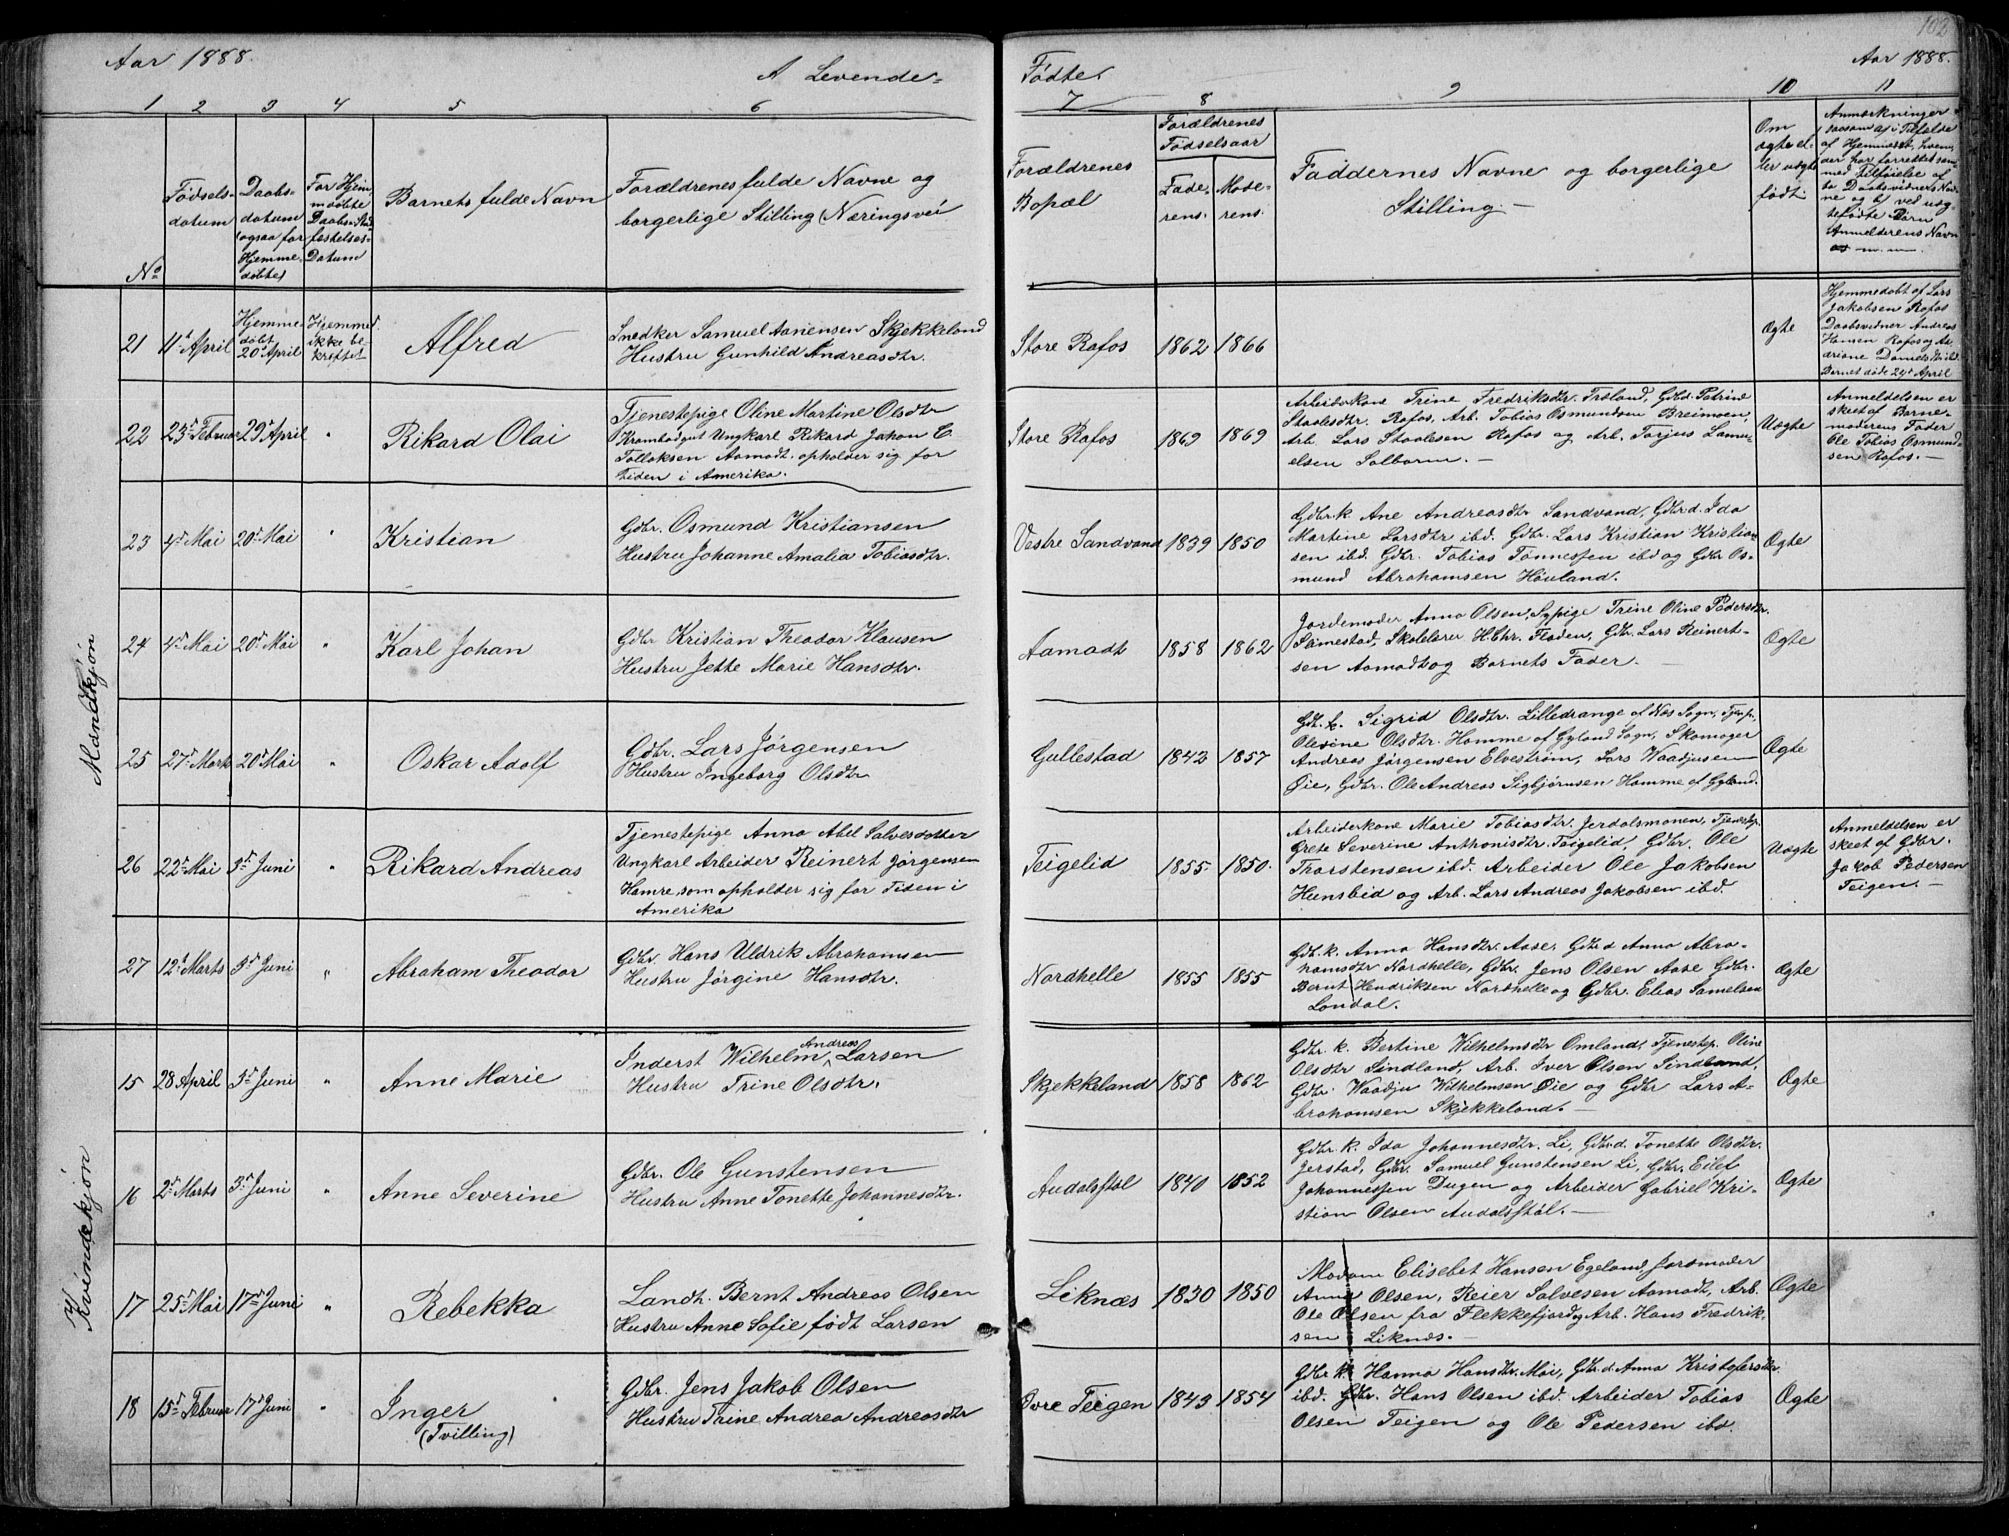 Aar 1888.
A Levende
1 2 3 4 5 6
No
Fødsels-
datum
Daabs-
datum
(ogsaa for
Hjemme-
døbte)
For Hjem-
mdøbte
Daabs Stad-
festelses-
Datum
Barnets fulde Navn
Forældrenes fulde Navne og
borgerlige Stilling (Næringsvei
Mandkjøn
21 11te April
Hjemme-
døbt
20de April
Hjemmed.
ikke be-
kræftet
Alfred
Snedker Samuel Aanensen Skjekkeland
Hustru Gunhild Andreasdtr.
22 23de Februar 29de April " Rikard Olai
Tjenestepige Oline Martine Olsdtr
Krambodgut Ungkarl Rikard Jakon C.
Tolloksen Aamodt. opholder sig for
Tiden i Amerika.
23 4de Mai 20de Mai " Kristian
Gdbr. Osmund Kristiansen
Hustru Johanne Amalia Tobiasdtr.
24 4de Mai 20de Mai " Karl Johan
Gdbr Kristian Theodor Klausen
Hustru Jette Marie Hansdtr.
25 27de Marts 20de Mai " Oskar Adolf
Gdbr. Lars Jørgensen
Hustru Ingeborg Olsdtr
26 22de Mai 3de Juni " Rikard Andreas
Tjenestepige Anna Abel Salvesdatter
Ungkarl Arbeider Reinert Jørgensen
Hamre, som opholder sig for Tiden i
Amerika
27 12te Marts 3de Juni " Abraham Theodor
Gdbr. Hans Uldrik Abrahamsen
Hustru Jørgine Hansdtr.
Kvindekjøn
15 28 April 3de Juni " Anne Marie
Inderst Wilhelm Andreas Larsen
Hustru Trine Olsdtr.
16 2de Marts 3de Juni " Anne Severine
Gdbr. Ole Gunstensen
Hustru Anne Tonette Johannesdtr.
17 25de Mai 17de Juni " Rebekka
Landh. Bernt Andreas Olsen
Hustru Anne Sofie født Larsen
18 15de Februar 17de Juni " Inger
(Tvilling)
Gdbr. Jens Jakob Olsen
Hustru Trine Andrea Andreasdtr
102
Fødte.
Aar 1888.
7 8 9 10 11
Forældrenes
Bopæl
Forældrenes
Fødselsaar
Fade-
rens.
Mode-
rens.
Faddernes Navne og borgerlige
Stilling. —
Om
ægte el-
ler uægte
født
Anmærkninger
saasom a) i Tilfælde
af Hjemmedøbt, hvem
der har forrettet sam-
med tilføielse af
to Daabsvidners Nav-
ne og b) ved uæg-
tefødte Børn
Anmelderens Navn
m. m.
Store Rafos 1862 1866 Ægte
Hjemmedøbt af Lars
Jakobsen Rafos
Daabsvidner Andreas
Hansen Rafos og An-
driane Danielsdtr ibd.
Barnet døde 29de April
Store Rafos 1869 1869
Arbeiderkone Trine Fredriksdtr. Træland, Gdbd. Patrine
Staalesdtr. Rafos, Arb. Tobias Osmundsen Breimoen,
Arb. Lars Staalesen Rafos og Arb. Tarjus Samu-
elsen Solbarm. —
Uægte
Anmeldelsen er
skeet af Barne-
moderens Fader
Ole Tobias Osmund-
sen Rafos. —
Vestre Sandvand 1839 1850
Gdbr.k Ane Andreasdtr Sandvand, Gdbr.d. Ida
Martine Larsdtr ibd. Gdbr. Lars Kristian Kristian-
sen ibd. Gdbr. Tobias Tønnessen ibd og Gdbr Os-
mund Abrahamsen Høuland.
Ægte
Aamodt 1858 1862
Jordemoder Anna Olsen, Sypige Trine Oline Pedersdtr.
Sånestad, Skolelærer H. Chr. Floden, Gdbr. Lars Reinert-
sen Aamodt og Barnets Fader. —
Ægte
Gullestad 1842 1857
Gdbr. k. Sigrid Olsdtr. Lilledrange af Næs Sogn, Tjenp.
Olesine Olsdtr. Homme af Gyland Sogn, Skomager
Andreas Jørgensen Elvestrøm, Lars Waadjusen
Øie, Gdbr. Ole Andreas Sigbjørnsen Homme af Gyland.
Ægte
Teigelid 1855. 1850.
Arbeiderkone Marie Tobiasdtr. Jerdalsmonen, Tjenestep.
Grete Severine Anthonisdtr. Teigelid, Gdbr. Ole
Thorstensen ibd. Arbeider Ole Jakobsen
Hunsbed og Arb. Lars Andreas Jakobsen ibd.
Uægte
Anmeldelsen er
skeet af Gdbr.
Jakob Pedersen
Teigen. —
Nordhelle 1855 1855
Gdbr. k. Anna Hansdtr. Aase, Gdbr.d Anna Abra-
hamsdtr Nordhelle, Gdbr. Jens Olsen Aase Gdbr.
Bernt Hendriksen Nordhelle og Gdbr. Elias Samelsen
Londal.
Ægte
Skjekkeland 1858 1862
Gdbr. k. Bertine Wilhelmsdtr Omland, Tjenestep. Oline
Olsdtr Sindland, Arb. Iver Olsen Sindland,
Gdbr. Waadju Wilhelmsen Øie og Gdbr Lars A-
brahamsen Skjekkeland. —
Ægte
Audalsstøl 1840 1852
Gdbr. k. Ida Johannesdtr. Li, Gdbr.d. Tonette Olsdtr.
Jerstad, Gdbr. Samuel Gunstensen Li, Gdbr. Eilef
Johannessen Dugen og Arbeider Gabriel Kri-
stian Olsen Audalsstøl. —
Ægte
Liknæs 1830 1850
Madam Elisebet Hansen Egeland, Jordmoder
Anne Olsen, Reier Salvesen Aamodt, Arb.
Ole Olsen fra Flekkefjord og Arb. Hans Fredrik-
sen Liknæs. —
Ægte
Øvre Teigen 1843 1854
Gdbr k. Hanna Hansdtr. Moi, Gdbr.d. Anna Kristofersdtr.
ibd. Gdbr. Hans Olsen ibd. Arbeider Tobias
Olsen Teigen og Ole Pedersen ibd.
Ægte